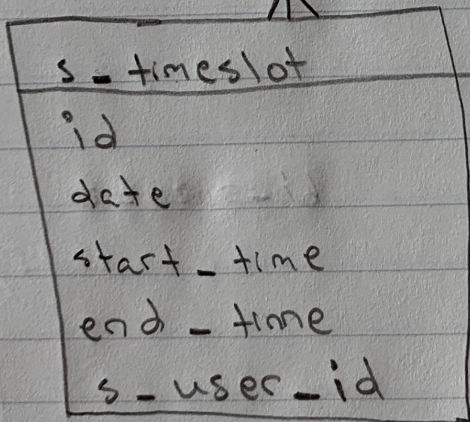 s_timeslot
id
date
start_time
end_time
s_user_id